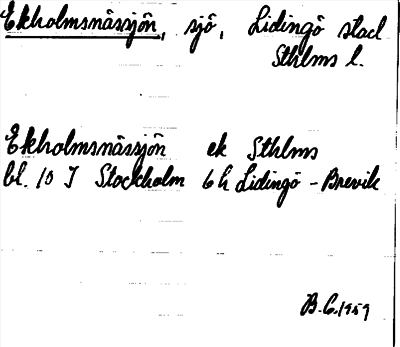 Ekholmsnässjön, sjö, Lidingö stad
Sthlms l.
Ekholmsnässjön ek Sthlms
bl. 10 I Stockholm 6 h Lidingö - Brevik
B.C. 1959